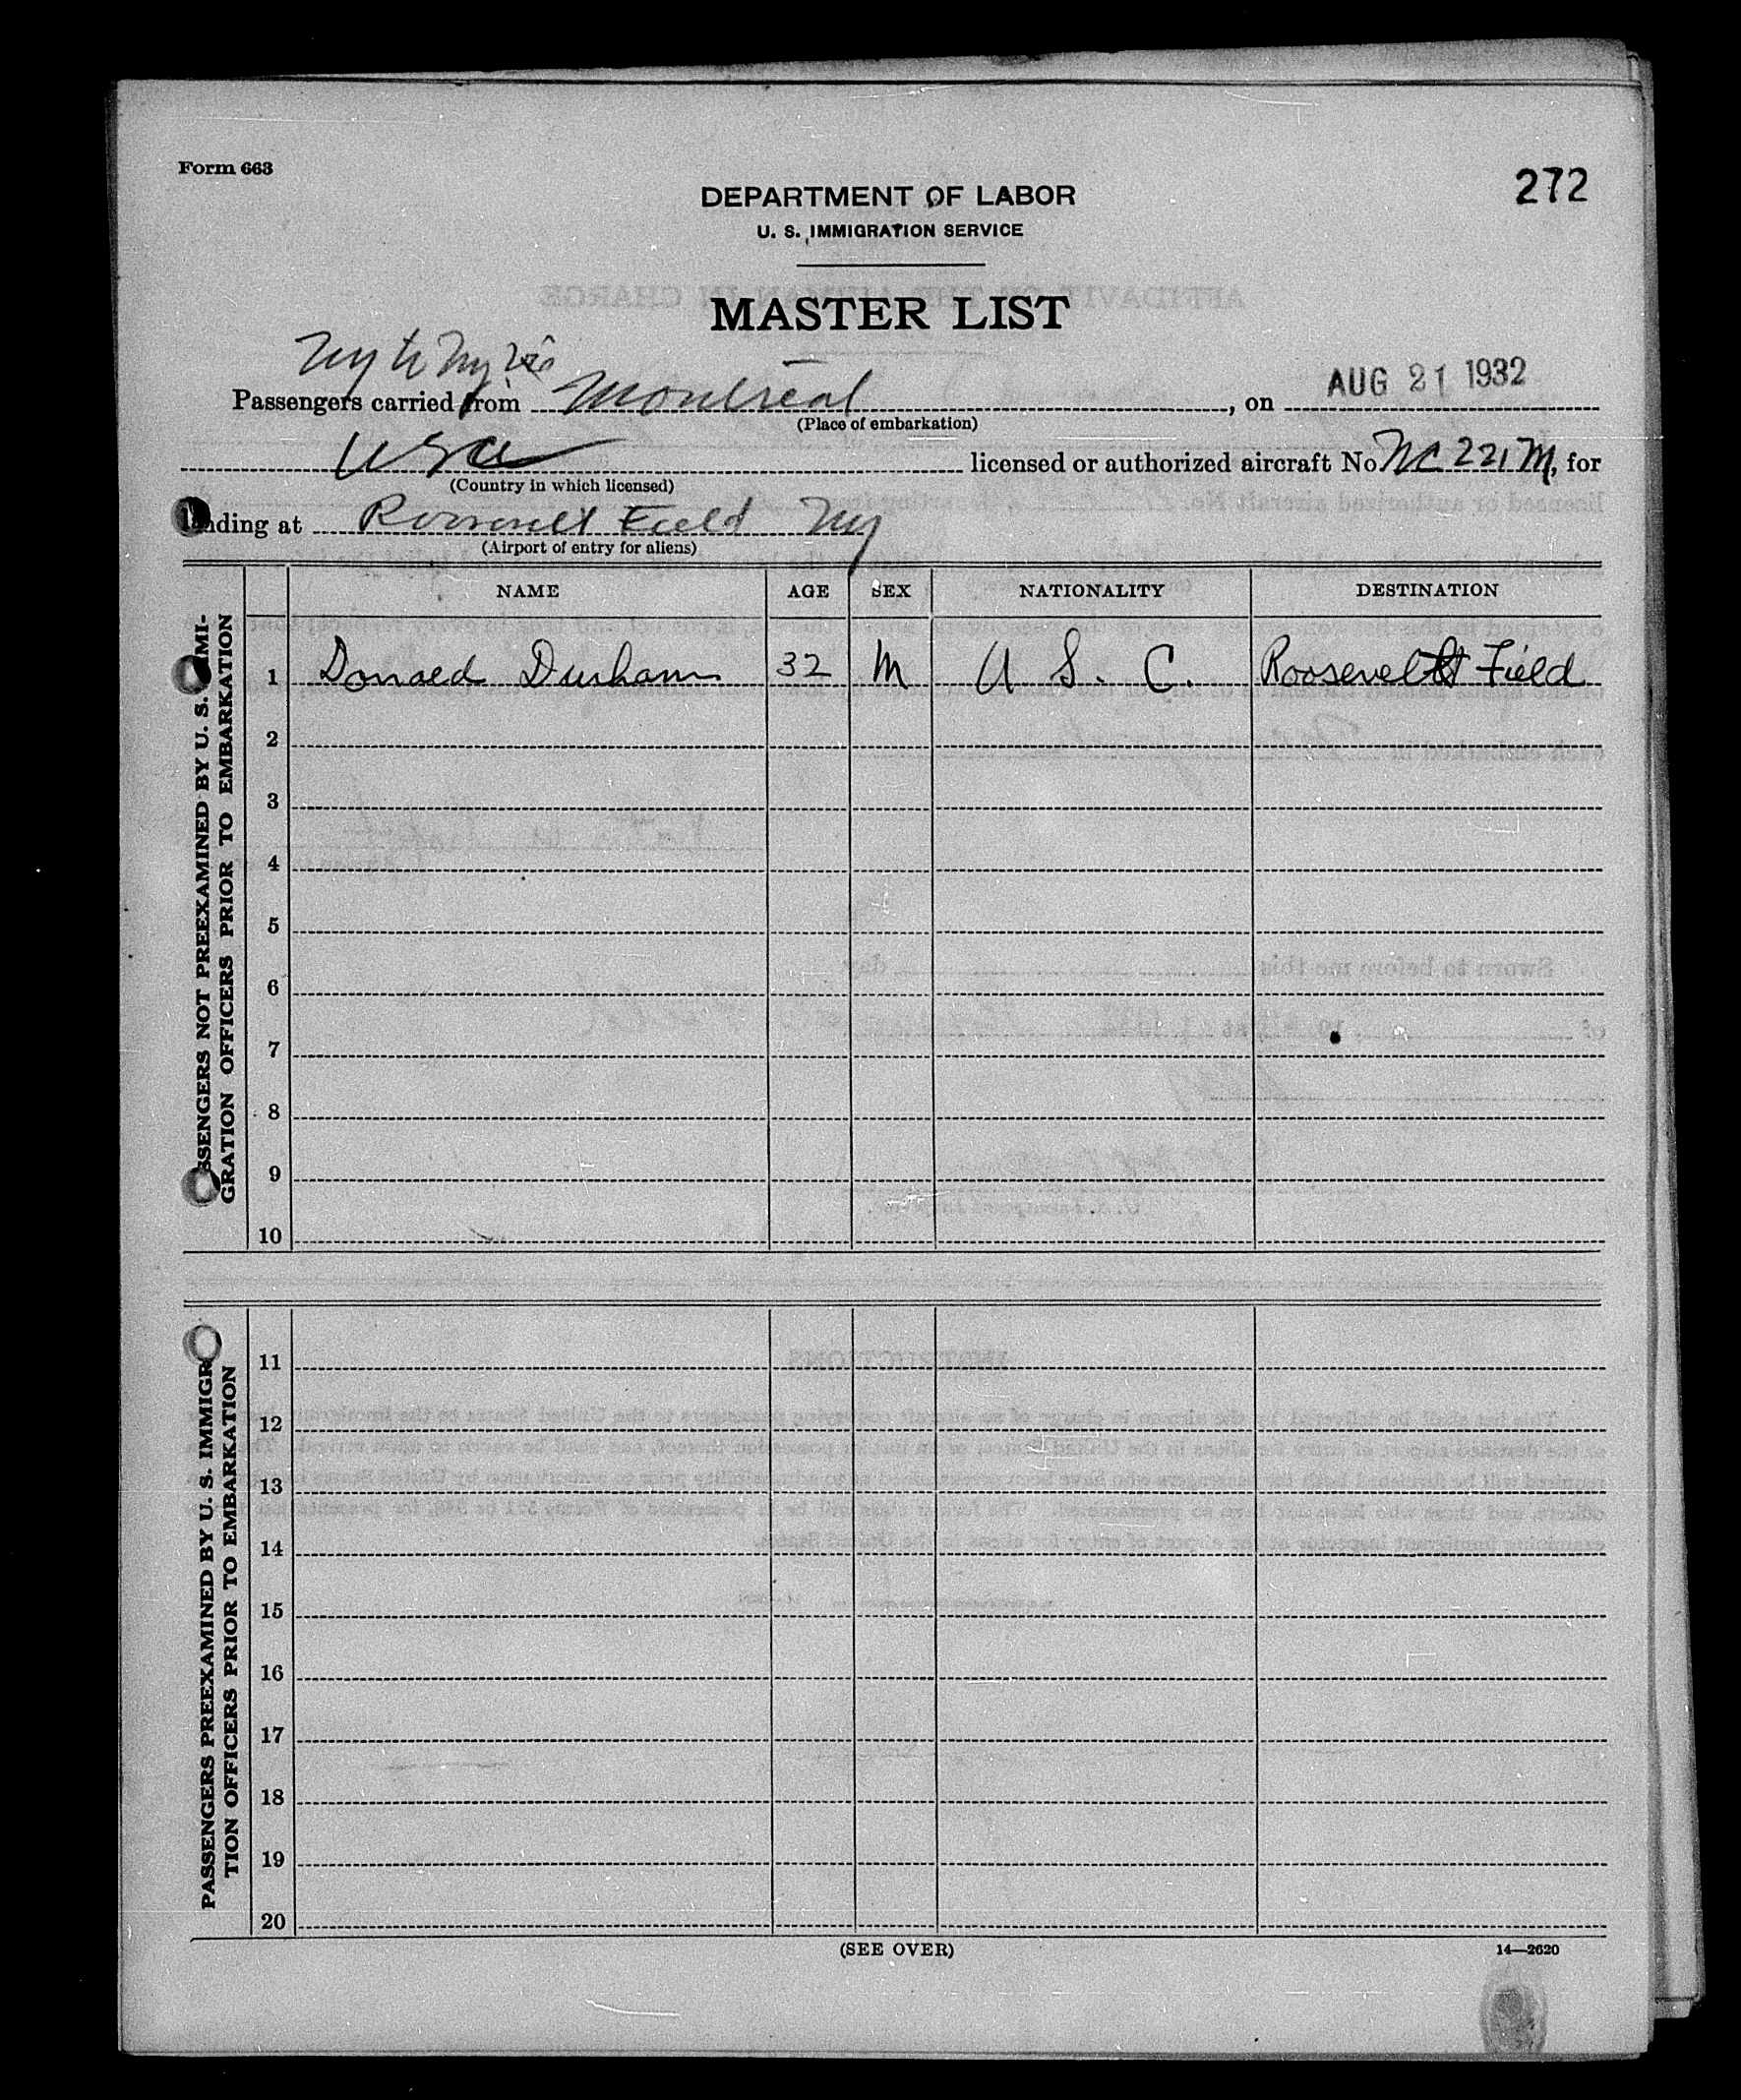 Form 663
272
DEPARTMENT OF LABOR
U. S. IMMIGRATION SERVICE
MASTER LIST
Ny to Ny via
Passengers carried from Montreal, on AUG 21 1932
(Place of embarkation)
USA licensed or authorized aircraft No. NC 221 M, for
(Country in which licensed)
landing at Roosevelt Field Ny
(Airport of entry for aliens)
NAME AGE SEX NATIONALITY DESTINATION
PASSENGERS NOT PREEXAMINED BY U. S. IMMI-
GRATION OFFICERS PRIOR TO EMBARKATION
1 Donald Durham 32 M U S. C. Roosevelt Field
2
3
4
5
6
7
8
9
10
PASSENGERS PREEXAMINED BY U. S. IMMIGRA-
TION OFFICERS PRIOR TO EMBARKATION
11
12
13
14
15
16
17
18
19
20
(SEE OVER)
14—2620